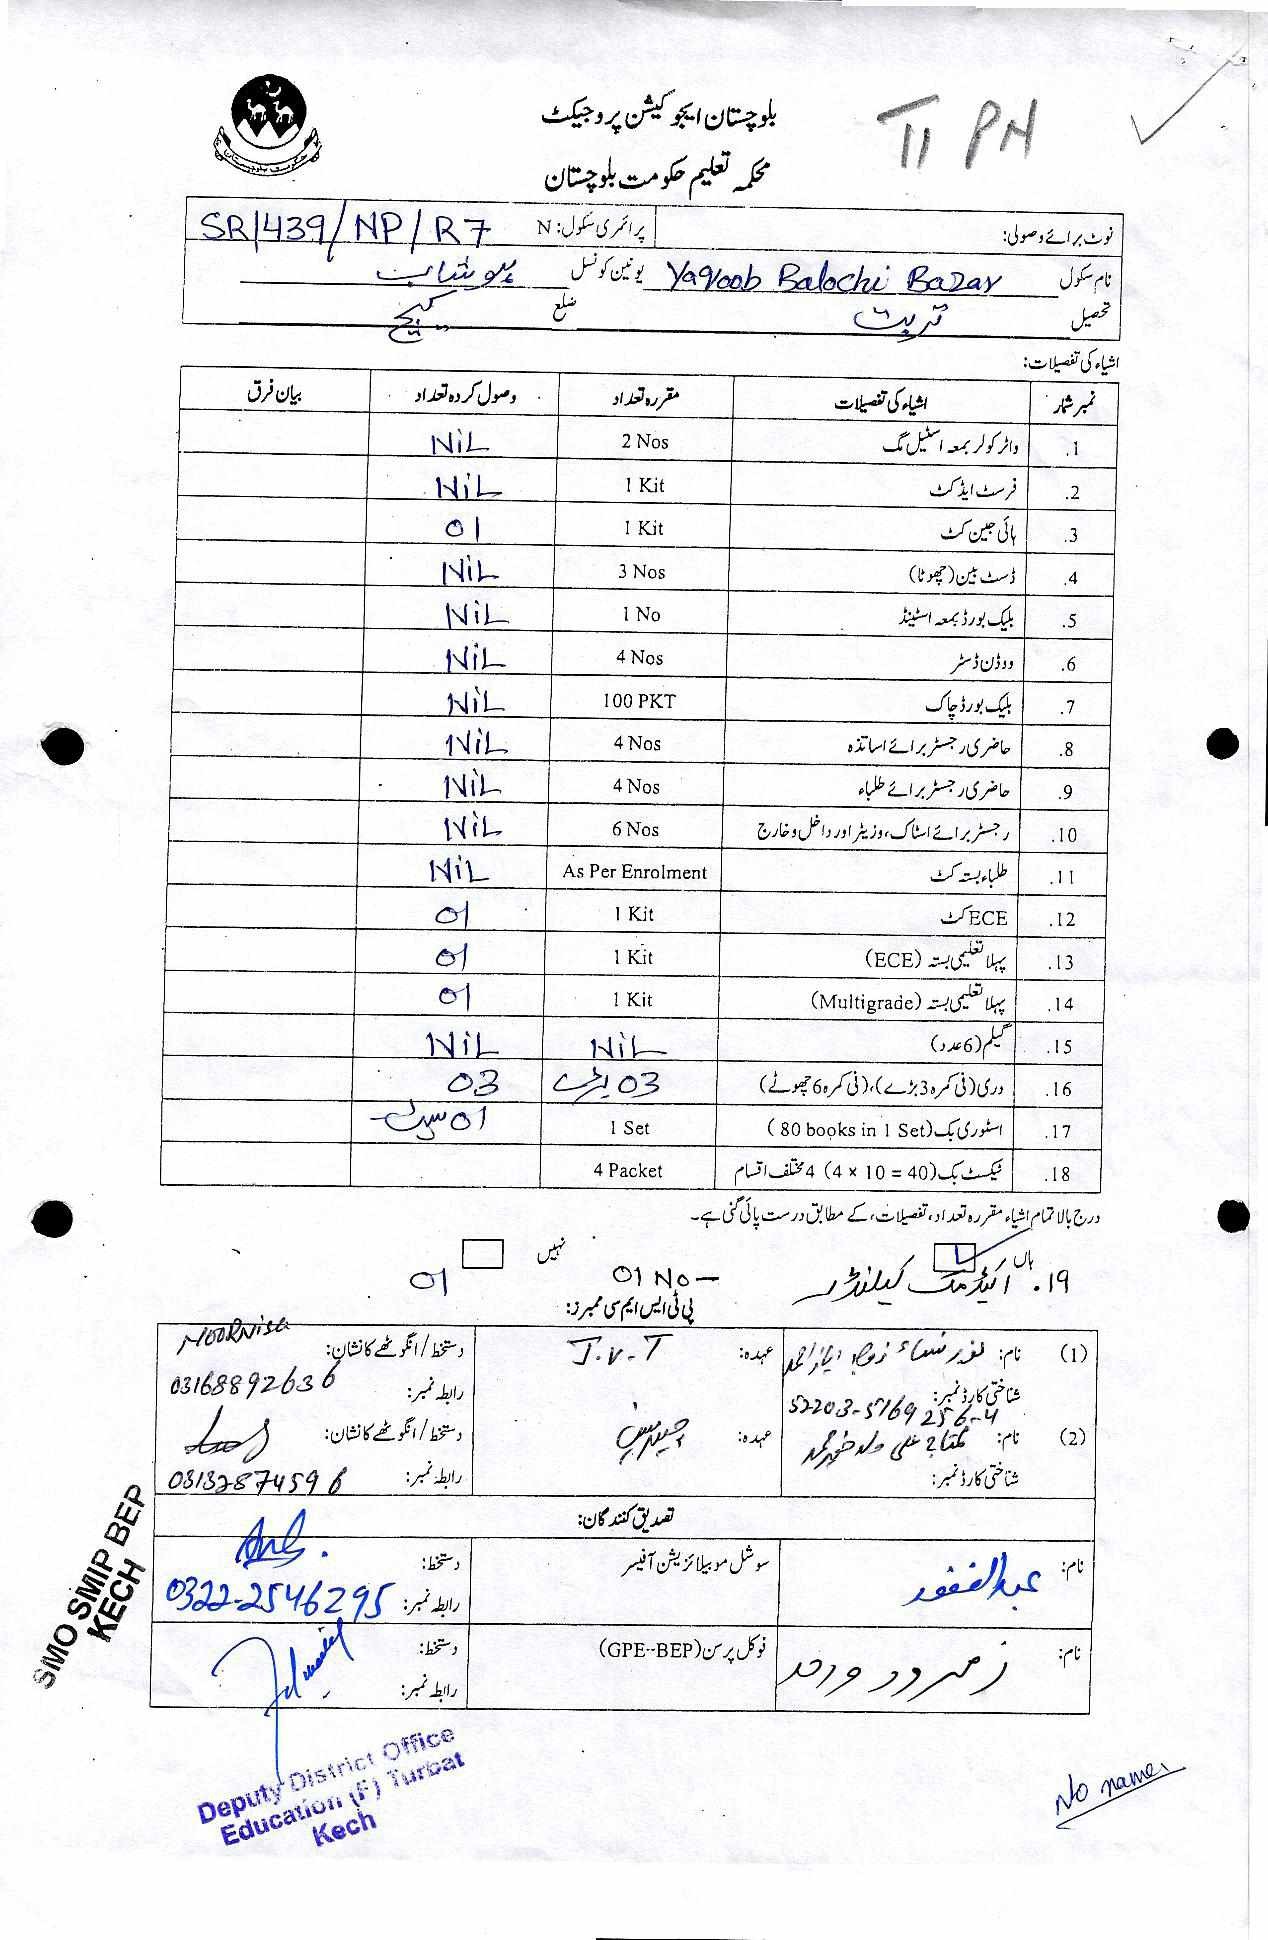 بلوچستان ایجوکیشن پروجیکٹ
II PN
محکمہ تعلیم حکومت بلوچستان
نوٹ برائے وصولی: پرائمری سکول: N SR/439/NP/R7
نام سکول Yaqoob Balochi Bazar یونین کونسل ہوشاب
تحصیل تربت ضلع کیچ
اشیاء کی تفصیلات:
نمبر شمار اشیاء کی تفصیلات مقررہ تعداد وصول کردہ تعداد بیان فرق
1. واٹر کولر بمعہ اسٹیل مگ 2 Nos NiL
2. فرسٹ ایڈ کٹ 1 Kit NiL
3. ہائی جین کٹ 1 Kit 01
4. ڈسٹ بین (چھوٹا) 3 Nos NiL
5. بلیک بورڈ بمعہ اسٹینڈ 1 No NiL
6. ووڈن ڈسٹر 4 Nos NiL
7. بلیک بورڈ چاک 100 PKT NiL
8. حاضری رجسٹر برائے اساتذہ 4 Nos NiL
9. حاضری رجسٹر برائے طلباء 4 Nos NiL
10. رجسٹر برائے اسٹاک، وزیٹر اور داخل و خارج 6 Nos NiL
11. طلباء بستہ کٹ As Per Enrolment NiL
12. ECE کٹ 1 Kit 01
13. پہلا تعلیمی بستہ (ECE) 1 Kit 01
14. پہلا تعلیمی بستہ (Multigrade) 1 Kit 01
15. گیلم (6 عدد) NiL NiL
16. دری (فی کمرہ 3 بڑے)، (فی کمرہ 6 چھوٹے) 03 بڑے 03
17. اسٹوری بک (80 books in 1 Set) 1 Set 01 سیٹ
18. ٹیکسٹ بک (4 × 10 = 40) 4 مختلف اقسام 4 Packet
درج بالا تمام اشیاء مقررہ تعداد، تفصیلات، کے مطابق درست پائی گئی ہے۔
ہاں نہیں
19. کیلنڈر 01 No 01
پی ٹی ایس ایم سی ممبرز:
(1) نام: نور نساء زوجہ ایاز احمد عہدہ: J.V.T دستخط/انگوٹھے کا نشان: NOORNisa
شناختی کارڈ نمبر: 52203-5769256-4 رابطہ نمبر: 03168892636
(2) نام: علی ولد عہدہ: چیئرمین دستخط/انگوٹھے کا نشان:
شناختی کارڈ نمبر: رابطہ نمبر: 03132874596
تصدیق کنندگان:
نام: عبدالغفور سوشل موبیلائزیشن آفیسر دستخط:
رابطہ نمبر: 0322-2546295
نام: زمرود واحد فوکل پرسن (GPE--BEP) دستخط:
رابطہ نمبر:
SMO SMIP BEP
KECH
Deputy District Office
Education (F) Turbat
Kech
No name